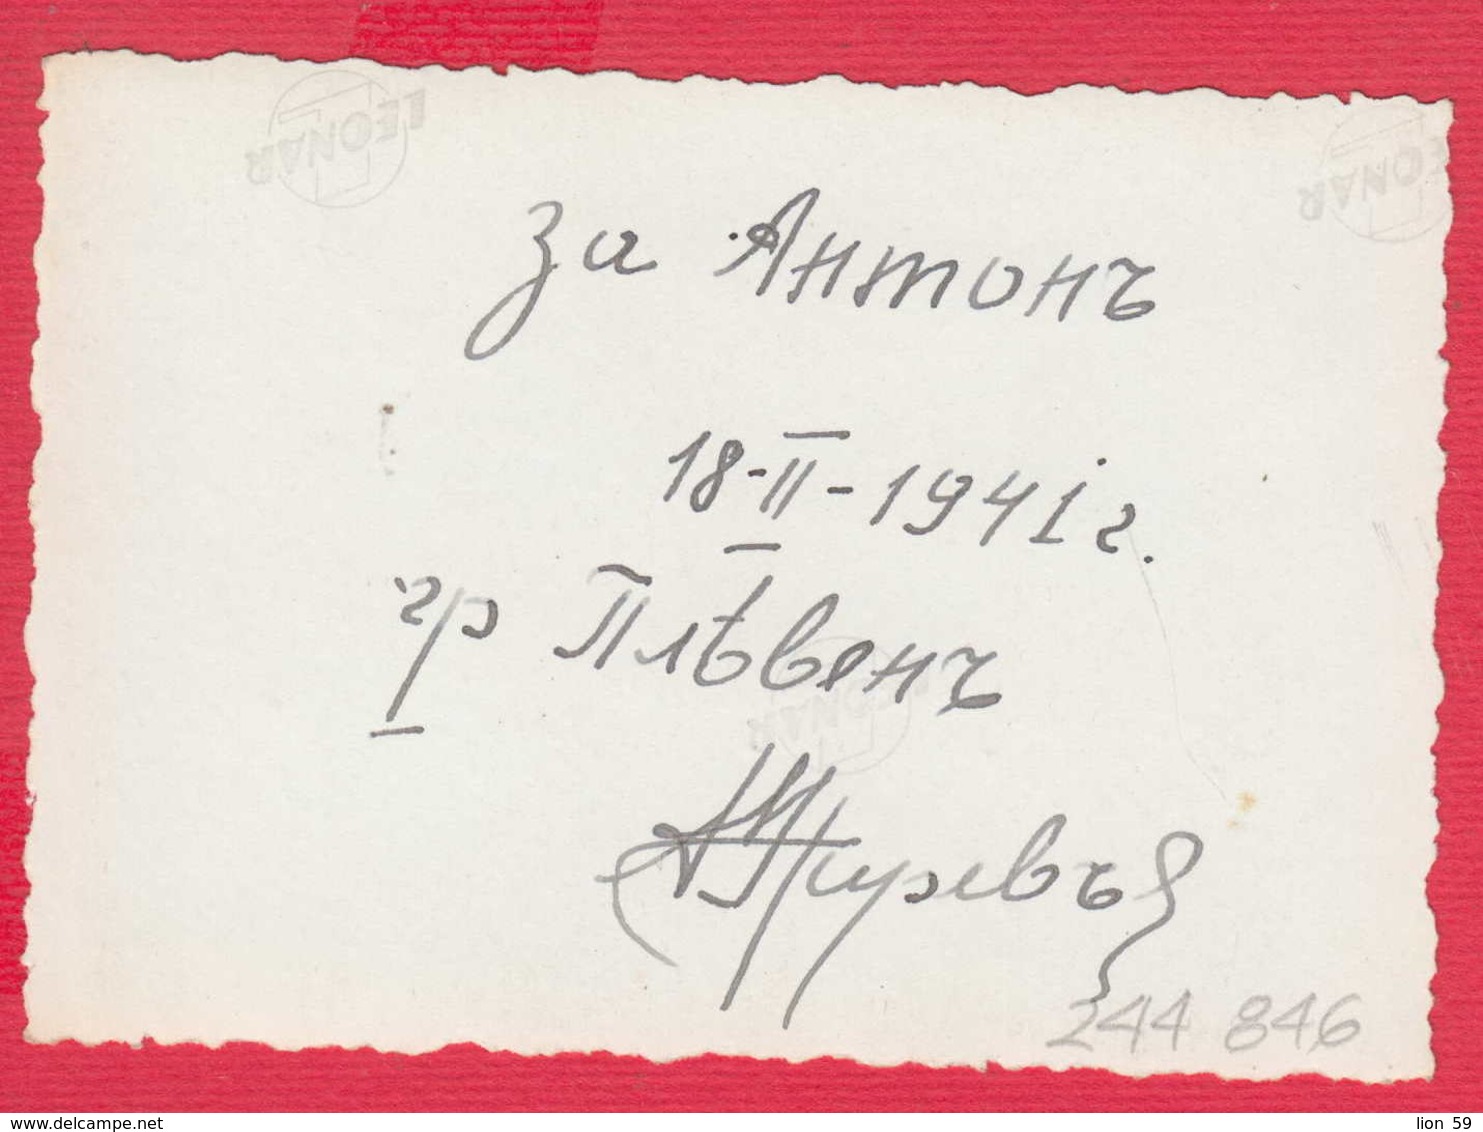 LEONAR
LEONAR
за Антонъ
18-II-1941 г.
гр Плѣвенъ
LEONAR
244 846
www.delcampe.net
lion 59